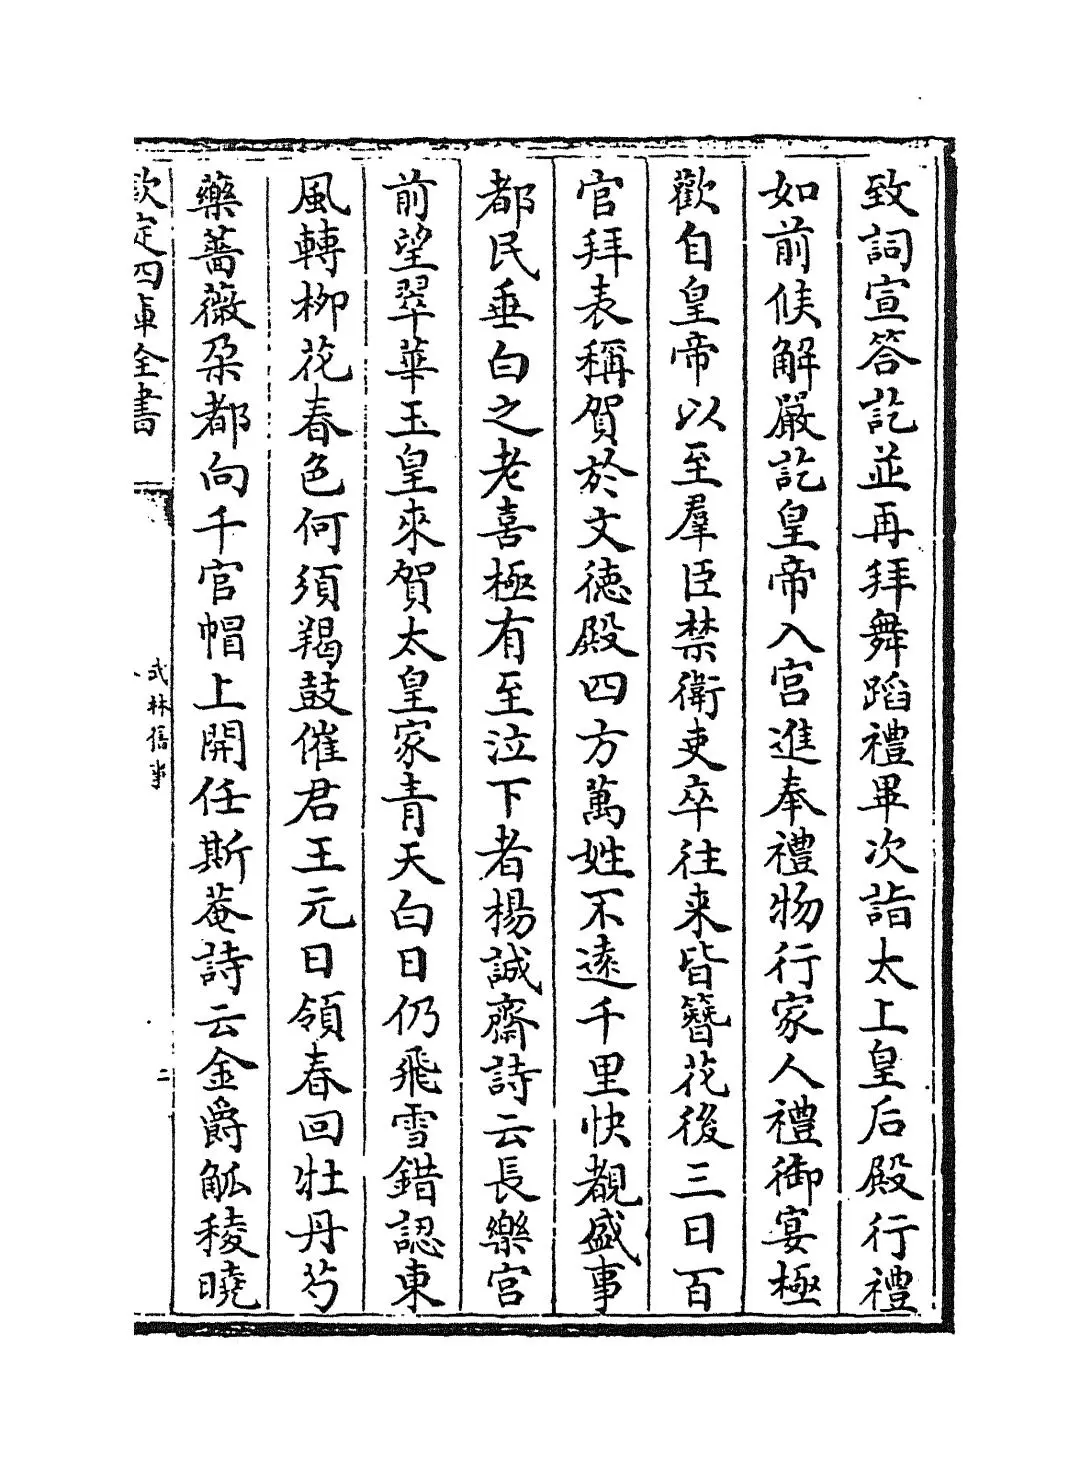 致詞宣答訖並再拜舞蹈禮畢次詣太上皇后殿行禮
如前候解嚴訖皇帝入宫進奉禮物行家人禮御宴極
歡自皇帝以至羣臣禁衛吏卒往来皆簪花後三日百
官拜表稱賀於文徳殿四方萬姓不逺千里快覩盛事
都民垂白之老喜極有至泣下者楊誠齋詩云長樂宫
前望翠華玉皇來賀太皇家青天白日仍飛雪錯認東
風轉栁花春色何須羯鼓催君王元日領春回牡丹芍
藥薔薇朶都向千官帽上開任斯菴詩云金爵觚稜曉
欽定四庫全書
武林舊事
二